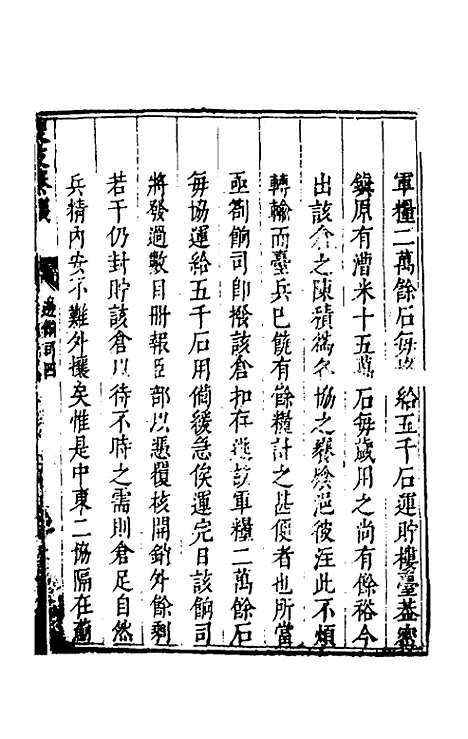 軍糧二萬餘石每 給五千石運貯樓臺蓋密
鎮原有漕米十五萬石每歲用之尚有餘裕今
出該倉之陳積為各協之饔飱挹彼注此不煩
轉輸而臺兵已饒有餘糧計之甚便者也所當
亟劄餉司即撥該倉扣存 該軍糧二萬餘石
每協運給五千石用備緩急俟運完日該餉司
將發過數目冊報臣部以憑覆核開銷外餘剩
若干仍封貯該倉以待不時之需則倉足自然
兵精內安不難外攘矣惟是中東二協隔在薊
邊餉司四